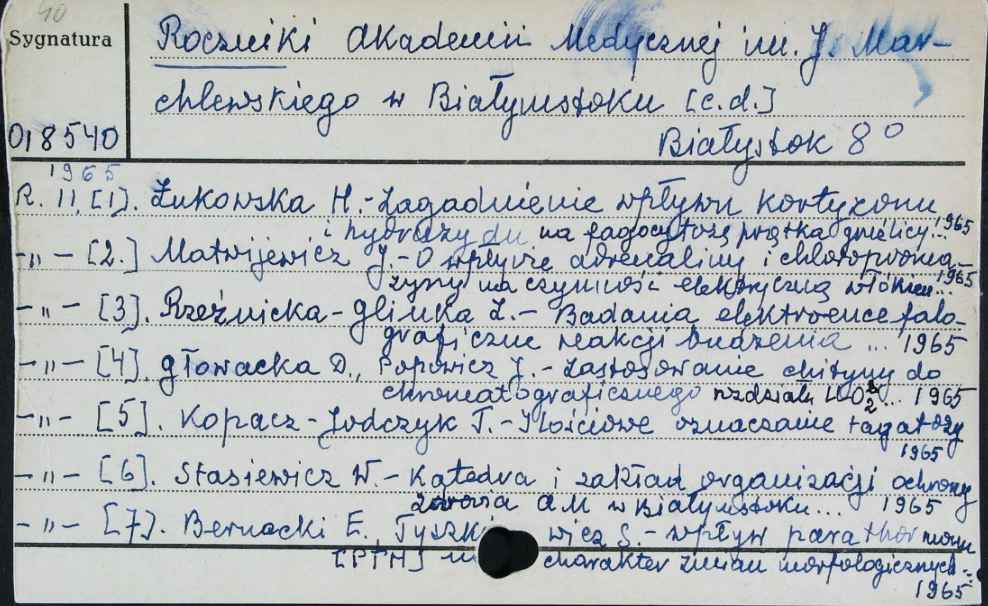 40
Sygnatura
Roczniki Akademii Medycznej im. J. Mar-
chlewskiego w Białymstoku [c.d.]
018540
Białystok 8°
1965
R. 11, [1]. Żukowska H.- Zagadnienie wpływu kortyzonu
i hydrazydu na fagocytozę prątka gruźlicy... 1965
-"- [2.] Matwijewicz J.- O wpływie adrenaliny i chloroproma-
zyny na czynność elektryczną włókien... 1965
-"- [3]. Rzeźnicka-Glinka L.- Badania elektroencefalo-
graficzne reakcji budzenia ... 1965
-"- [4]. Głowacka D., Popowicz J.- Zastosowanie chityny do
chromatograficznego rozdziału ... 1965
-"- [5]. Kopacz-Jodczyk T.- Ilościowe oznaczanie tagatozy
1965
-"- [6]. Stasiewicz W.- Katedra i zakład organizacji ochrony
zdrowia AM w Białymstoku... 1965
-"- [7]. Bernacki E., wicz S.- wpływ parathormonu
[PTH] charakter zmian morfologicznych...
1965